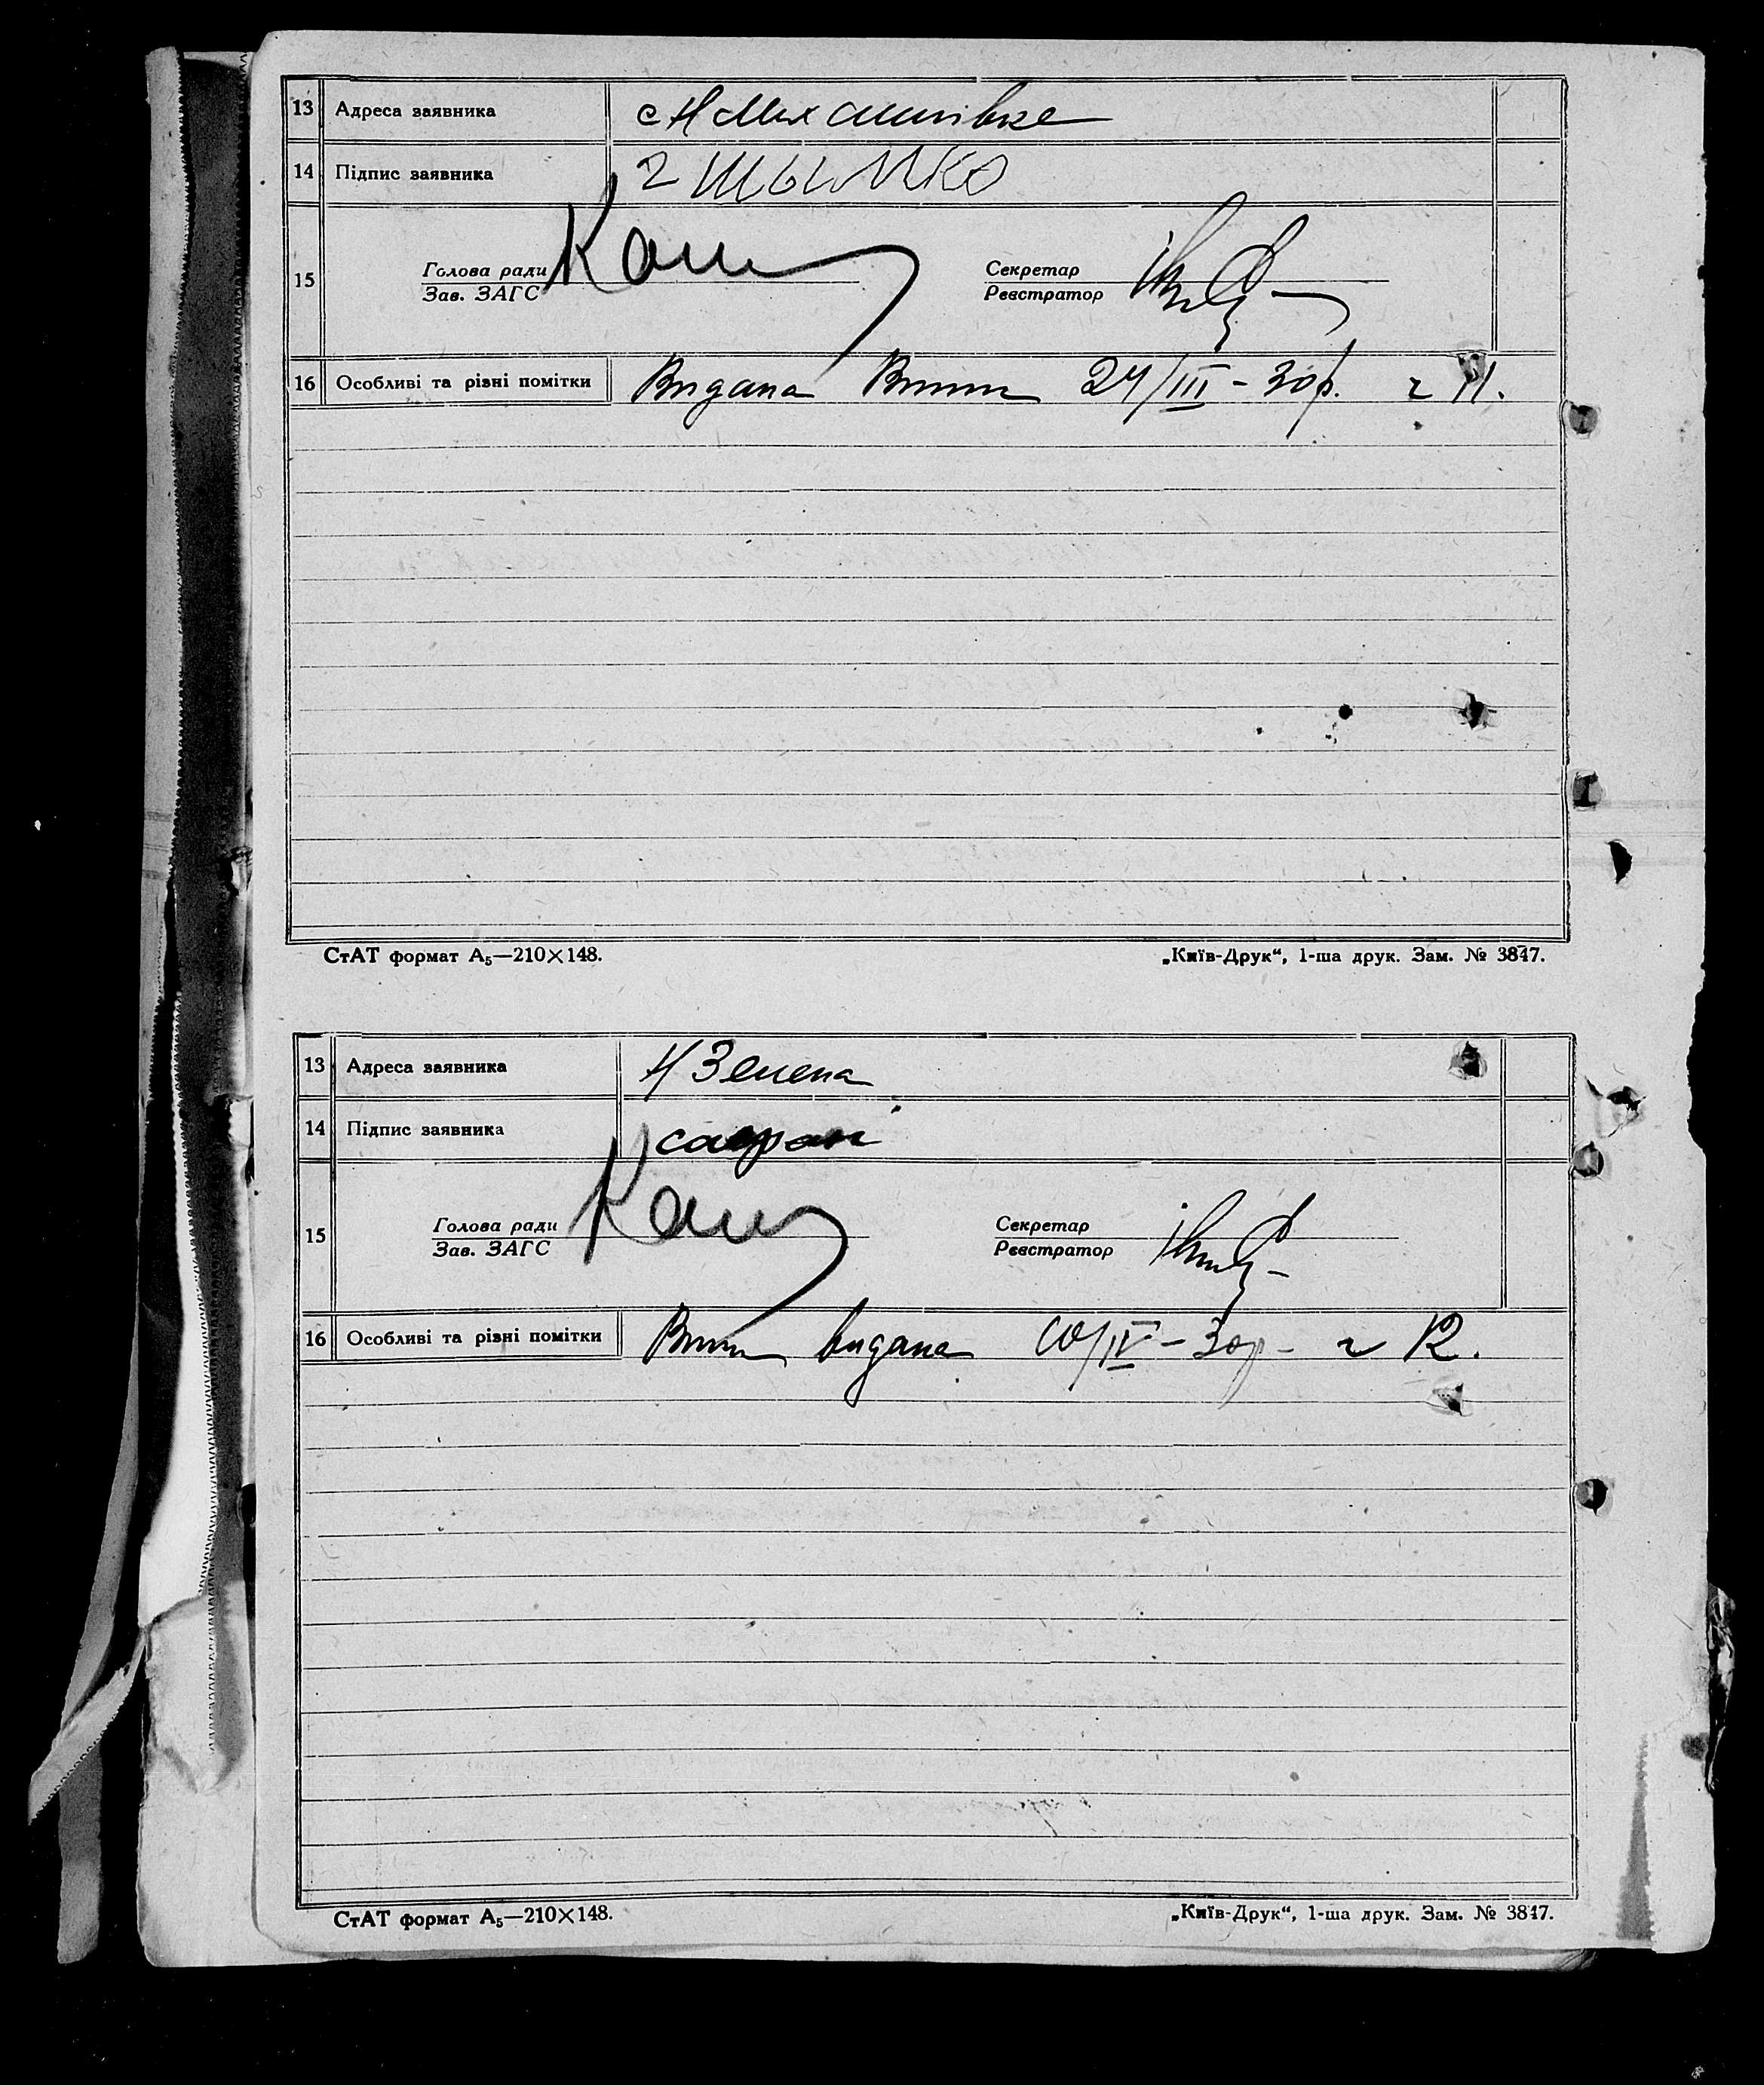 13 Адреса заявника с Н Михайлівка
14 Підпис заявника
Голова ради Секретар
15
Зав. ЗАГС Реєстратор
16 Особливі та різні помітки Видана Випис 24/III - 30р. № 11.
СтАТ формат А₅—210×148. „Київ-Друк“, 1-ша друк. Зам. № 3847.
13 Адреса заявника Н Зелена
14 Підпис заявника
Голова ради Секретар
15
Зав. ЗАГС Реєстратор
16 Особливі та різні помітки Випис видана 10/IV - 30р - № 12.
СтАТ формат А₅—210×148. „Київ-Друк“, 1-ша друк. Зам. № 3847.